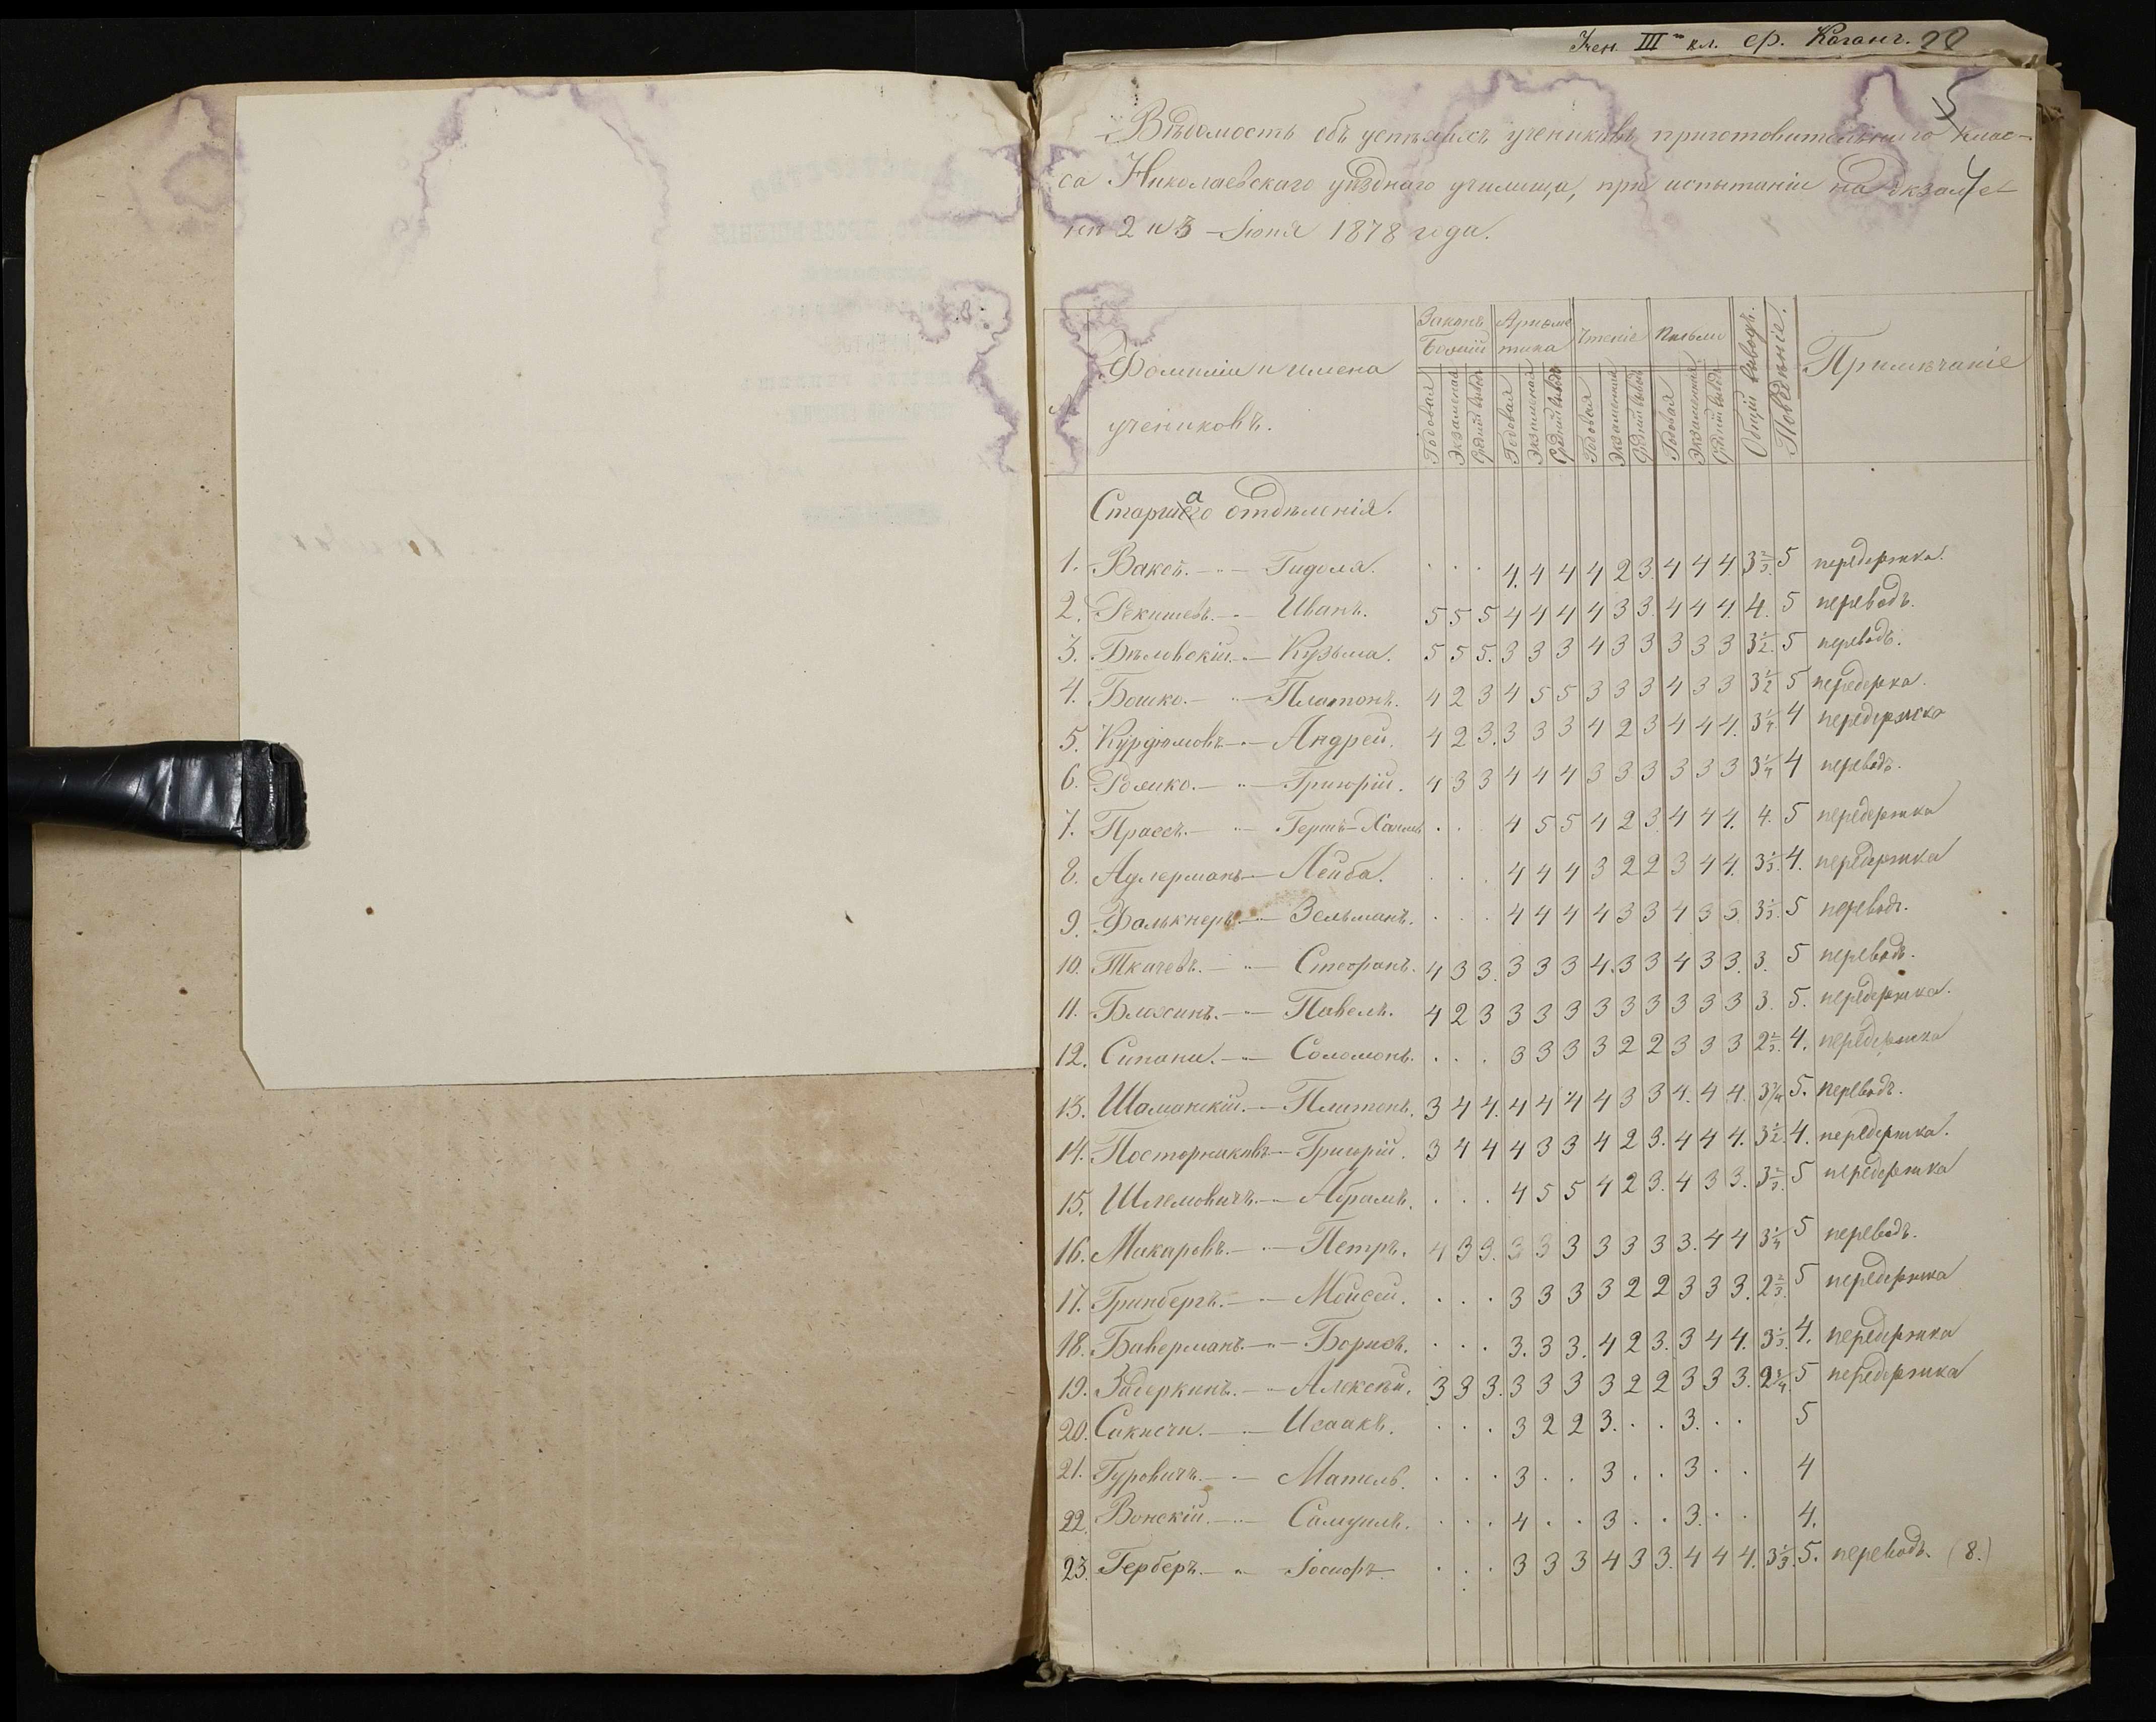 Учен. III кл. ср. Каганъ. 28
5
Вѣдомость объ успѣхахъ учениковъ приготовительнаго клас-
са Николаевскаго уѣзднаго училища, при испытаніи на экзаме-
нѣ 2 и 3 Іюня 1878 года.
7
№ Фамиліи и имена учениковъ. Законъ Божій Ариѳметика Чтеніе Письмо Общій выводъ. Поведеніе. Примѣчаніе
Годовая Экзаменная Средній выводъ Годовая Экзаменная Средній выводъ Годовая Экзаменная Средній выводъ Годовая Экзаменная Средній выводъ
Старшаго отдѣленія.
1. Ваксъ. Гидаля. . . . 4. 4 4 4 2 3. 4 4 4. 3 2/3. 5 передержка.
2. Иванъ. 5 5 5 4 4 4 4 3 3. 4 4 4. 4. 5 переводъ.
3. Бѣловскій. Кузьма. 5 5 5. 3 3 3 4 3 3 3 3 3 3 1/2. 5 переводъ.
4. Бошко. Платонъ. 4 2 3 4 5 5 3 3 3 4 3 3 3 1/2 5 передержка.
5. Курдюмовъ Андрей. 4 2 3. 3 3 3 4 2 3 4 4 4. 3 1/4 4 передержка
6. Григорій. 4 3 3 4 4 4 3 3 3 3 3 3 3 1/4 4 переводъ.
7. Прассъ. . . . 4 5 5 4 2 3. 4 4 4. 4. 5 передержка
8. Адлерманъ Лейба. . . . 4 4 4 3 2 2 3 4 4. 3 1/3. 4. передержка
9. Фалькнеръ Зельманъ. . . . 4 4 4 4 3 3 4 3 3. 3 1/3. 5 переводъ.
10. Ткачевъ. Стефанъ. 4 3 3. 3 3 3 4. 3 3 4 3 3. 3. 5 переводъ.
11. Блохинъ. Павелъ. 4 2 3 3 3 3 3 3 3 3 3 3 3. 5. передержка.
12. Соломонъ. . . . 3 3 3 3 2 2 3 3 3 2 2/3. 4. передержка
13. Шаманскій. Платонъ. 3 4 4. 4 4 4 4 3 3 4. 4 4. 3 3/4 5. переводъ.
14. Григорій. 3 4 4 4 3 3 4 2 3. 4 4 4. 3 1/2. 4. передержка.
15. Шлемовичъ. Абрамъ. . . . 4 5 5 4 2 3. 4 3 3. 3 2/3. 5 передержка
16. Макаровъ. Петръ. 4 3 3. 3 3 3 3 3 3 3. 4 4 3 1/4 5 переводъ.
17. Гринбергъ. Мойсей. . . . 3 3 3 3 2 2 3 3 3. 2 2/3. 5 передержка
18. Баверманъ. Борисъ. . . . 3. 3 3. 4 2 3. 3 4 4. 3 1/3. 4. передержка
19. Задеркинъ. Алексѣй. 3 3 3. 3 3 3 3 2 2 3 3 3. 2 3/4. 5 передержка
20. Исаакъ. . . . 3 2 2 3. . . 3. . . 5
21. Гуровичъ. Матель. . . . 3 . . 3 . . 3 . . 4
22. Вонскій. Самуилъ. . . . 4 . . 3 . . 3. . . 4.
23. Герберъ. Іосифъ . . . 3 3 3 4 3 3. 4 4 4. 3 1/3. 5. переводъ. (8.)